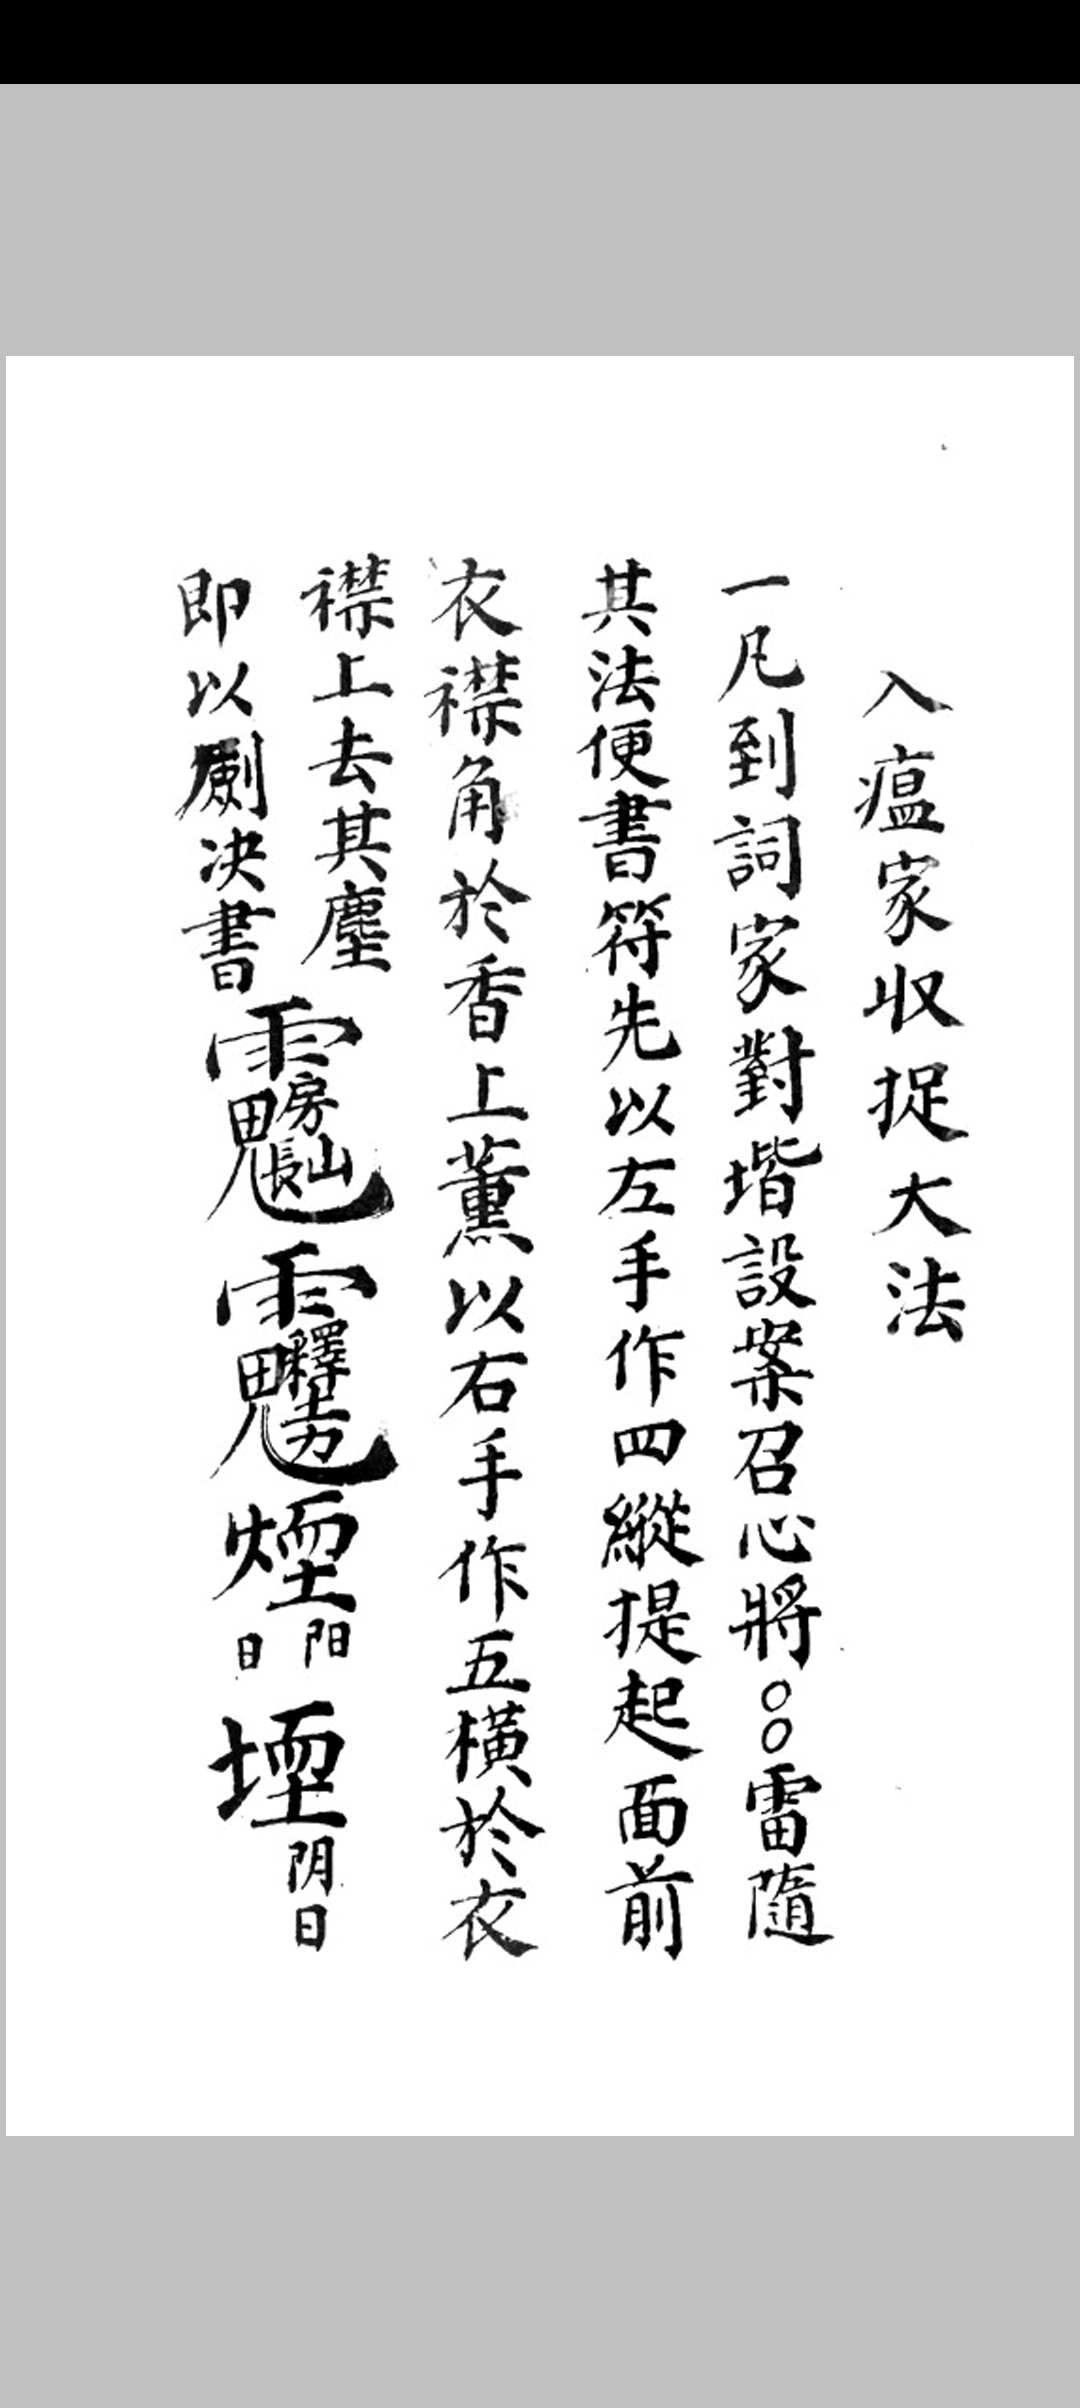 入瘟家収捉大法
一凡到詞家對堦設案召心將○○雷隨
其法便書符先以左手作四縱提起面前
衣襟角於香上薰以右手作五橫於衣
襟上去其塵
即以劂決書
煙 阳日
堙 阴日